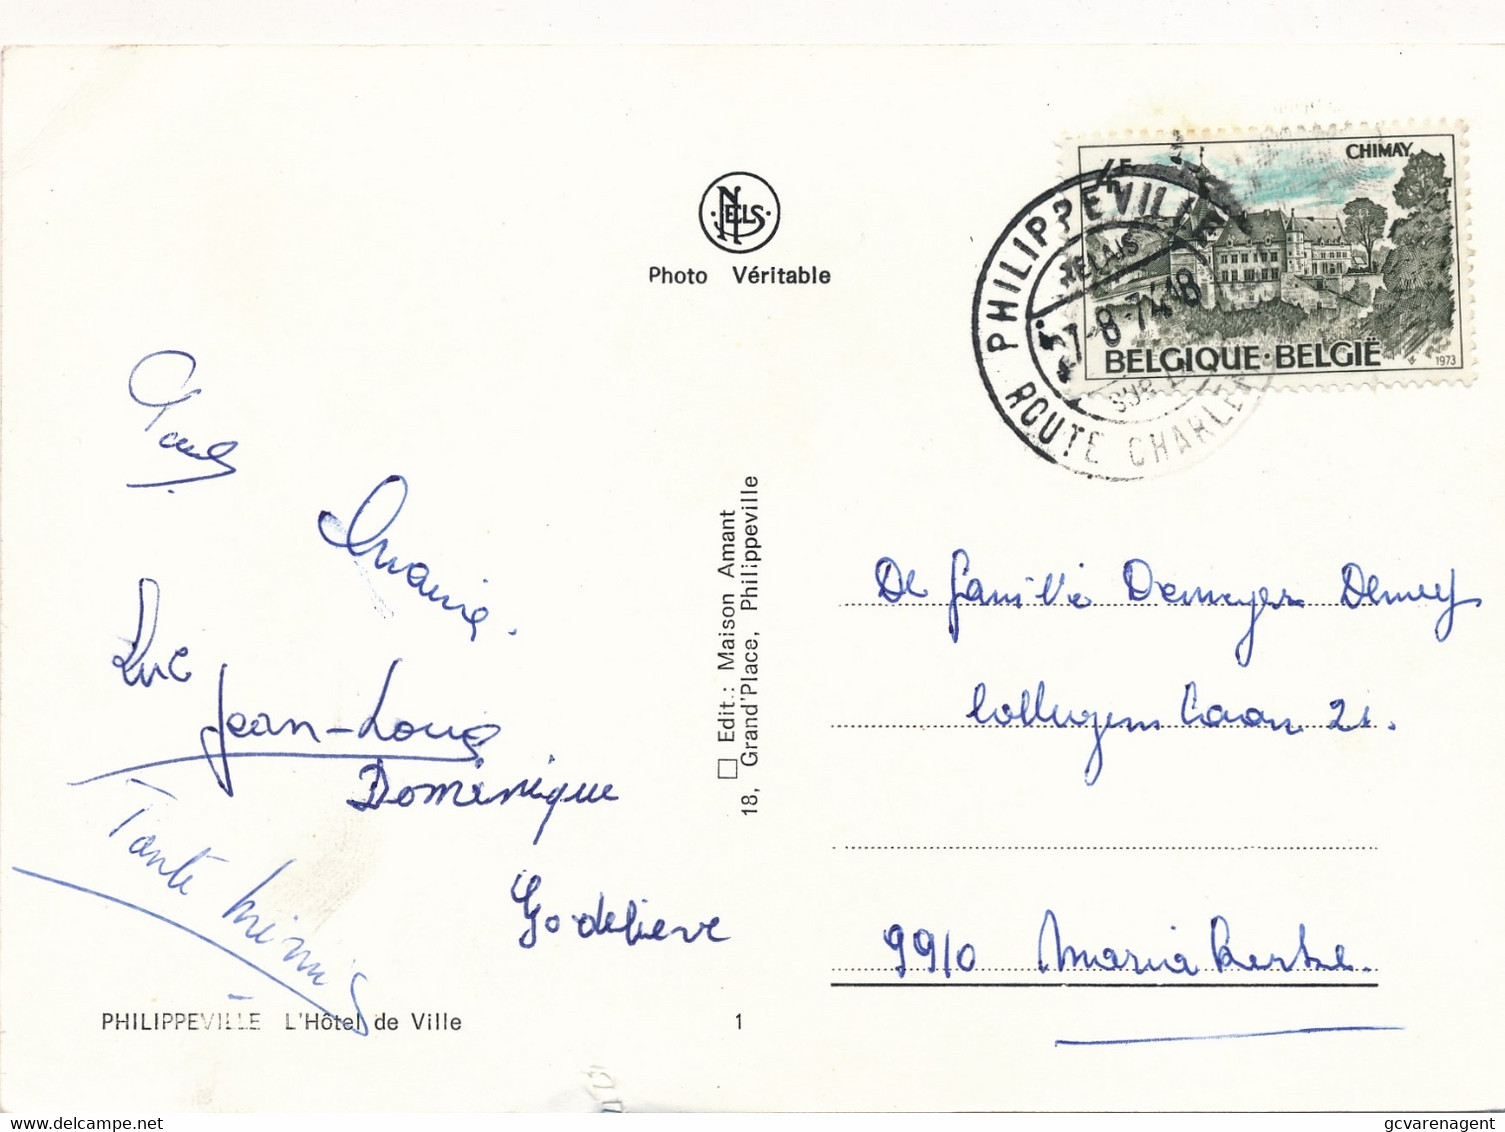 NELS
Photo Véritable
CHIMAY
4F
BELGIQUE·BELGIË
1973
PHILIPPEVILLE
RELAIS
7-8-74 18
SUR
ROUTE CHARLER
Paul
Luc
Jean-Louis
Dominique
Tante Mimi
Godelieve
Edit.: Maison Amant
18, Grand'Place, Philippeville
De familie Demeyer Demey
Laan 21.
9910 Mariakerke
PHILIPPEVILLE L'Hôtel de Ville
1
gcvarenagent